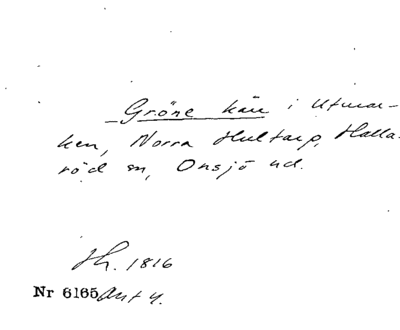 Gröne kär i Utmar-
ken, Norra Hultarp, Halla-
röd sn, Onsjö hd.
Sk. 1816
Nr 6165 Ant 4.